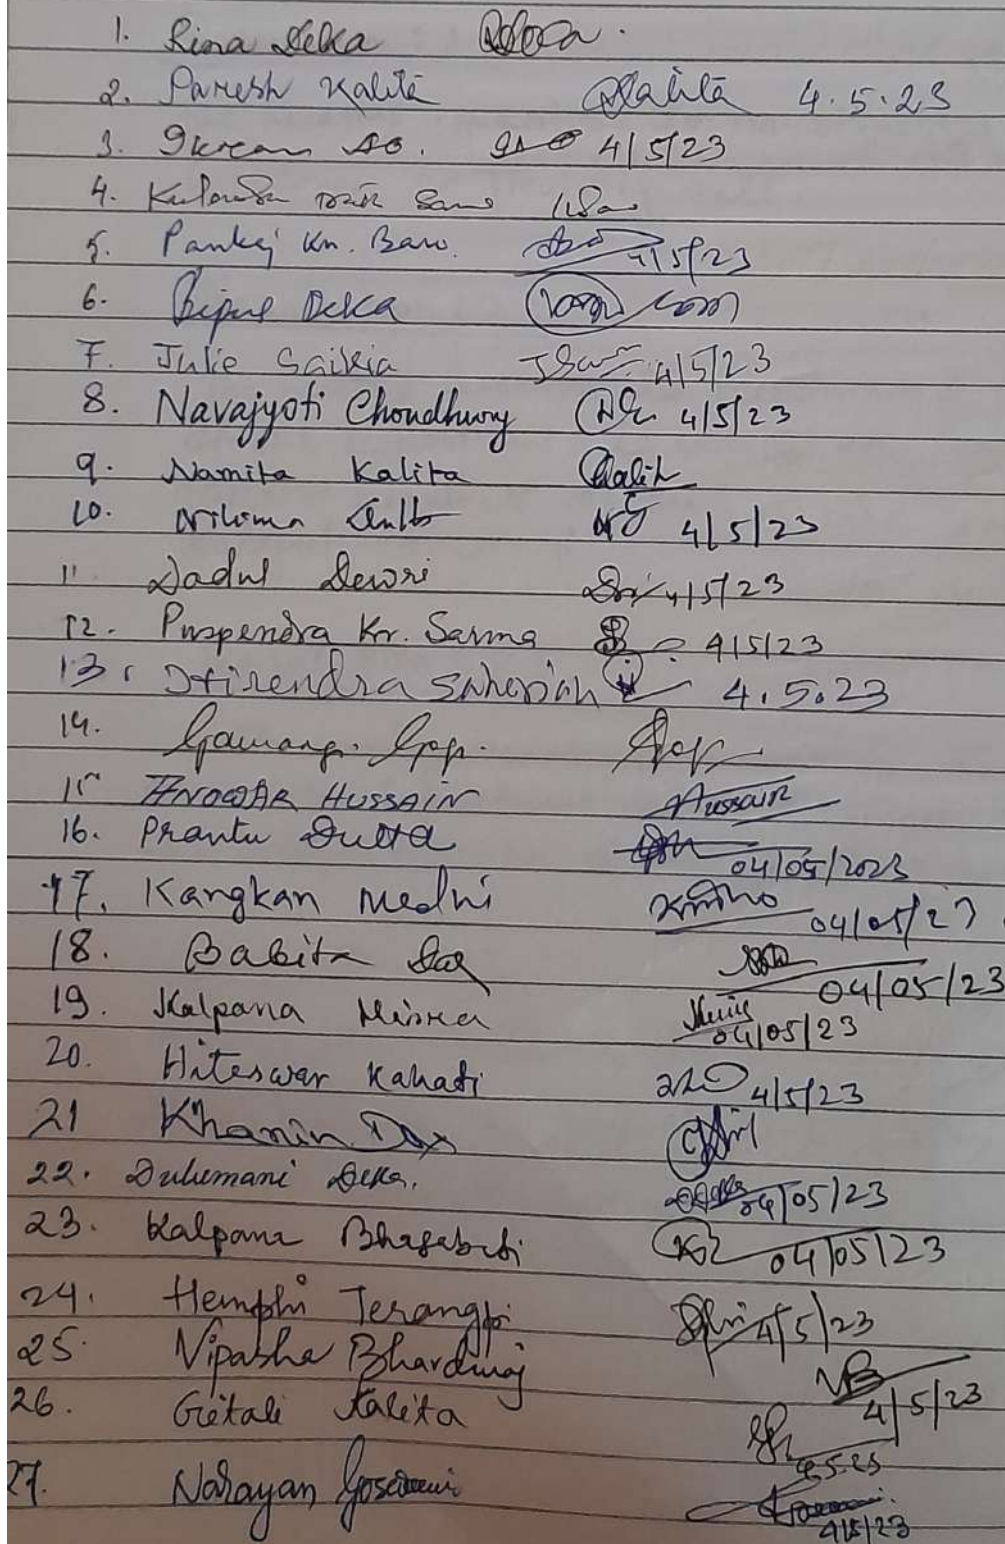 1. Rina Deka Deka.
2. Paresh Kalita Kalita 4.5.23
3. 4/5/23
4.
5. Pankaj Kr. Baro. 4/5/23
6. Bipul Deka
7. Julie Saikia 4/5/23
8. Navajyoti Choudhury 4/5/23
9. Namita Kalita Kalita
10. Nilima 4/5/23
11 Dadul Dewri 4/5/23
12. Puspendra Kr. Sarma 4/5/23
13. 4.5.23
14. Gogoi
15 ANOWAR HUSSAIN Hussain
16. Prantu Dutta 04/05/2023
17. Kangkan Medhi 04/05/23
18. Babita Das 04/05/23
19. Kalpana Misra 04/05/23
20. Hiteswar Kakati 4/5/23
21 Khanin Das
22. Dulumani Deka. 04/05/23
23. Kalpana Bhagabati 04/05/23
24. Hemphi Terangpi 4/5/23
25. Vipasha Bhardwaj VB 4/5/23
26. Gitali Kalita 4.5.23
27. Narayan Goswami 4/5/23